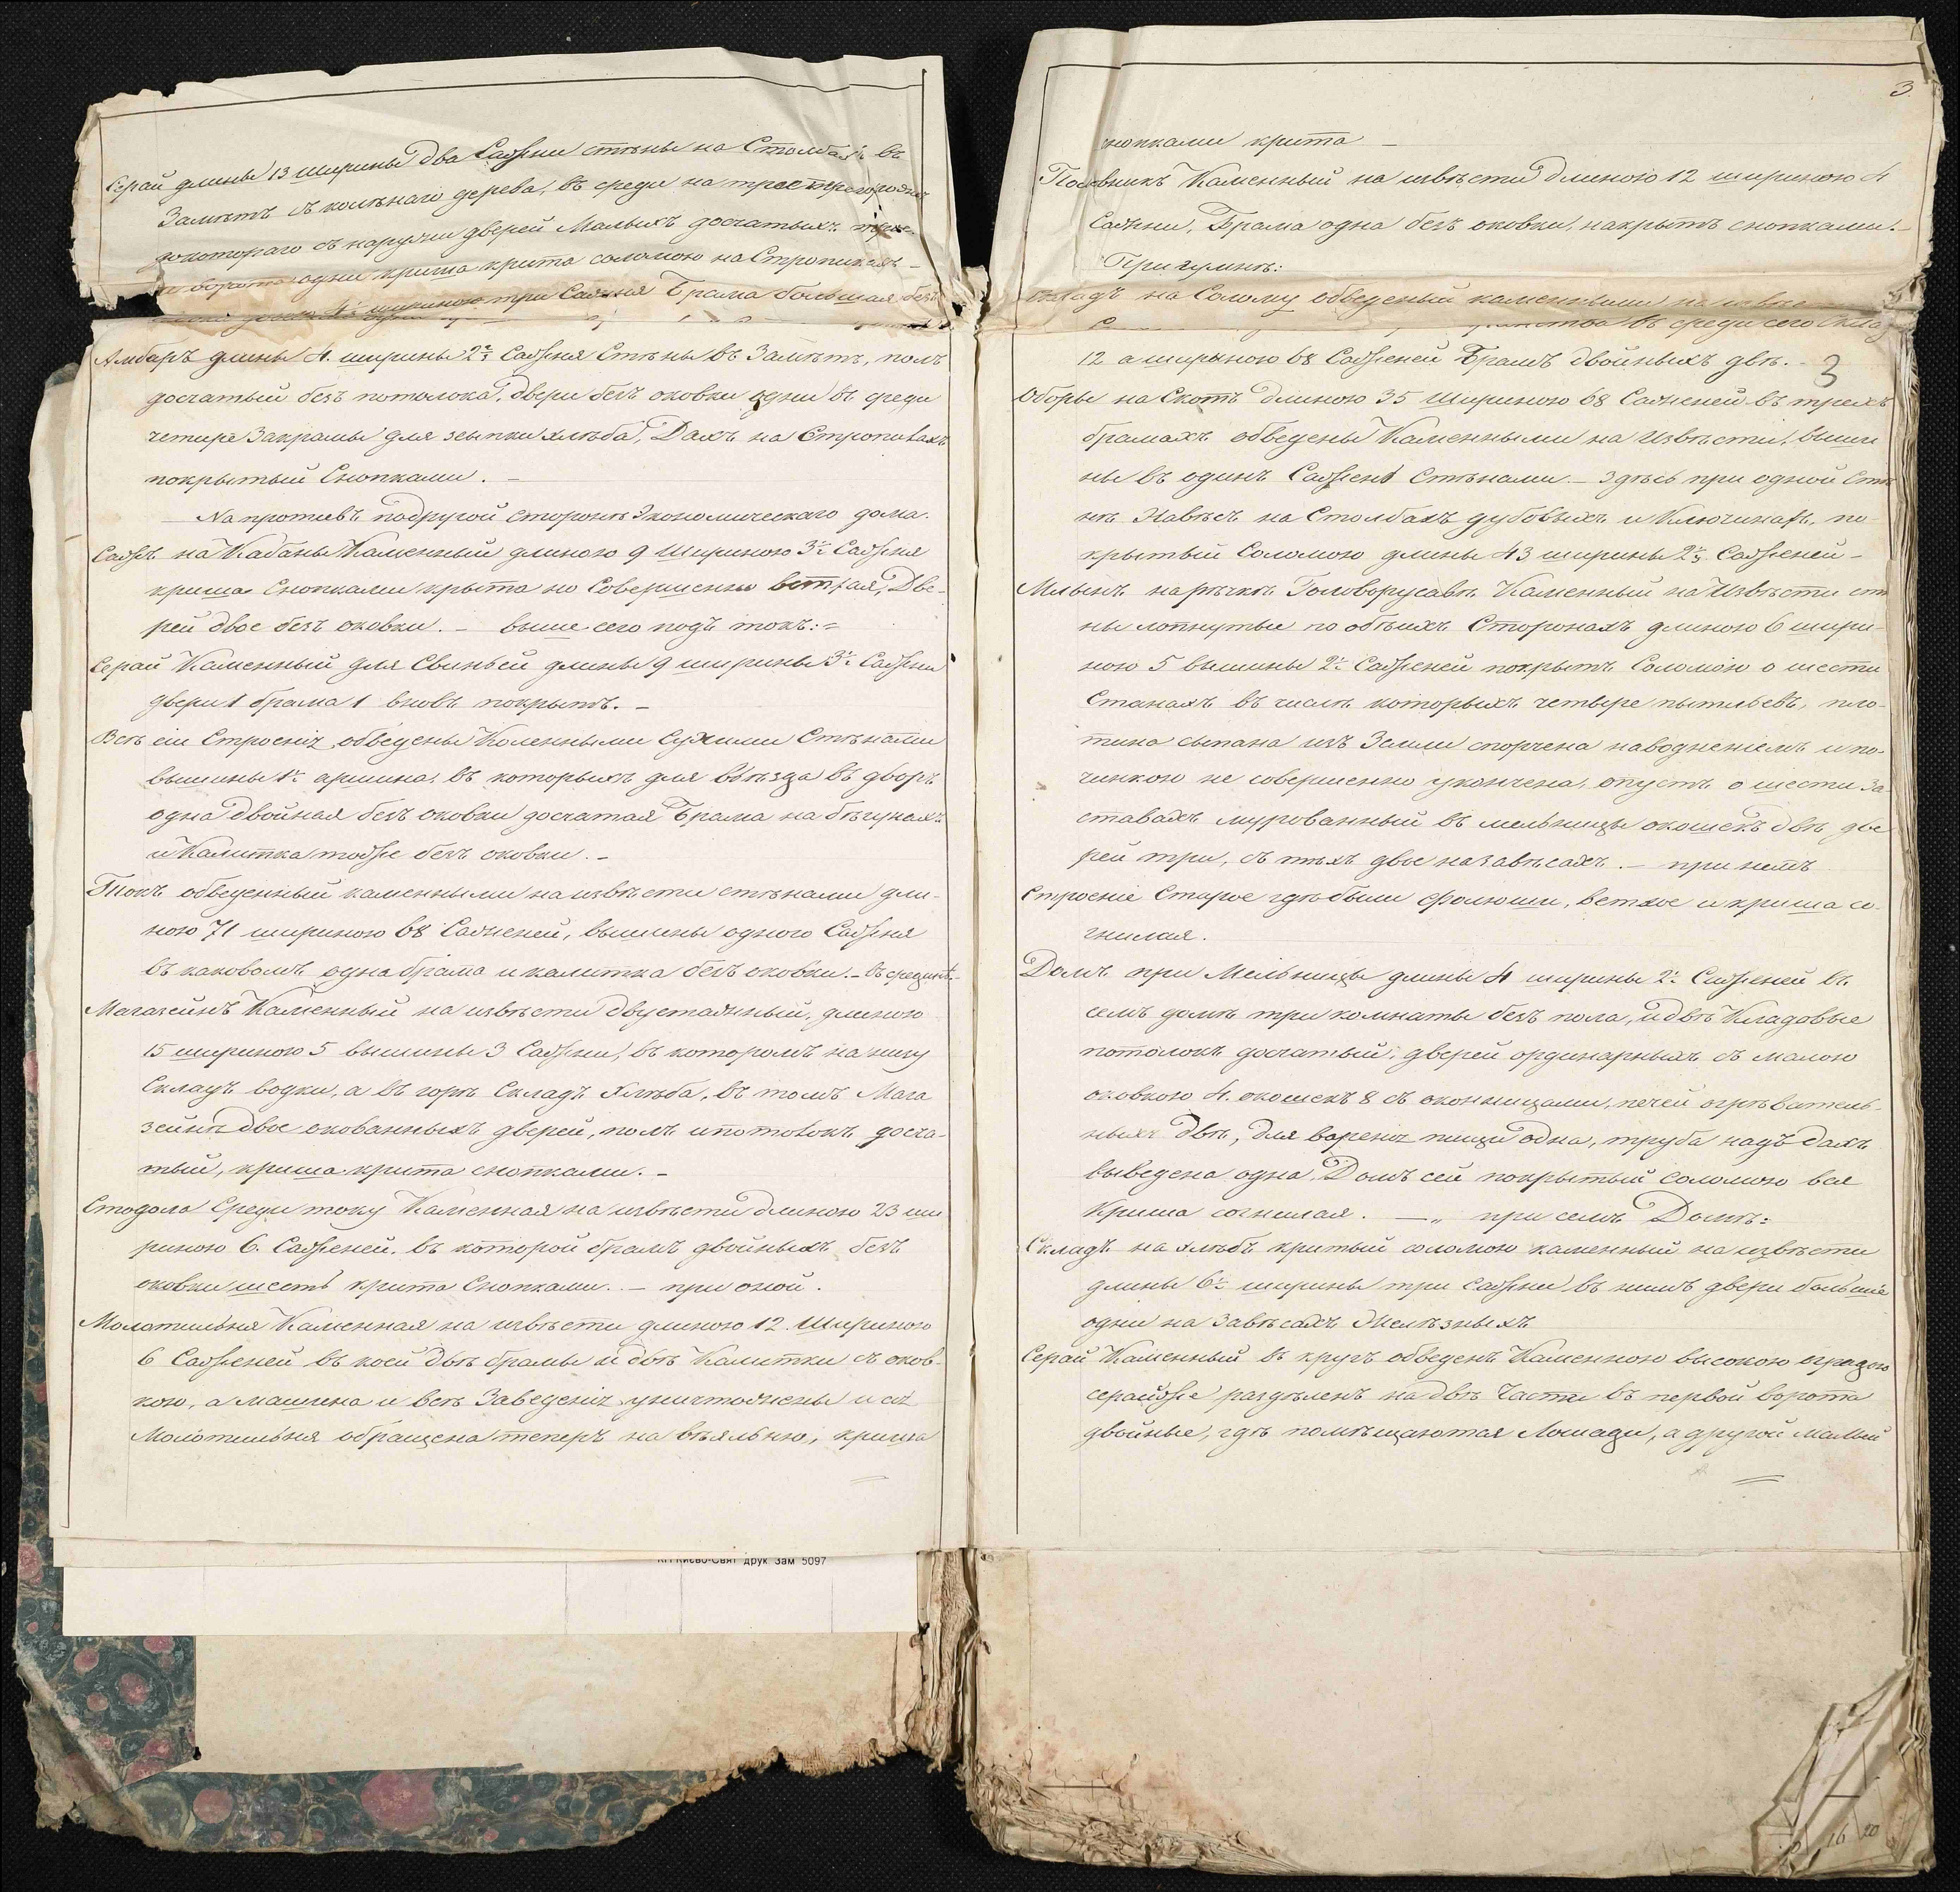 Серай длины 13 ширины два Сажни стены на Столбахъ въ
Заметъ съ колънаго дерева, въ среди на трое перегороджен
докотораго съ наружи дверей Малыхъ досчатыхъ трое
и ворота одни криша крита соломою на Стропилахъ –
ширино три Сажня Брама большая безъ
Амбаръ длины 4. ширины 2½ Сажня Стѣны въ Заметъ, полъ
досчатый безъ потолока, двери безъ оковки одни въ среди
четире Закрамы для зсыпки хлѣба, Дахъ на Стропилахъ
покрытый Снопками. –
На противъ подругой сторонѣ Экономическаго дома.
Сажъ на Кабаны Каменный длиною 9 Шириною 3½ Сажня
криша Снопками крыта но Совершенно ветхая, Две-
рей двое безъ оковки. – выше сего подъ токъ:=
Серай Каменный для Свиньей длины 9 ширины 3½ Сажни
двери 1 брама 1 вновь покрытъ. –
Всѣ сіи Строенія обведены Каленными Сухими Стѣнами
вышины 1½ аршина, въ которыхъ для въѣзда въ дворъ
одна двойная безъ оковки досчатая Брама на бѣгунахъ
и Калитка тоже безъ оковки. –
Токъ обведенный каменными на извѣсти стѣнами дли-
ною 71 шириною 68 Саженей, вышины одного Сажня
въ каковомъ одна брама и калитка безъ оковки. – въ срединѣ –
Магазейнъ Каменный на извѣсти двуетажный, длиною
15 шириною 5 вышины 3 Сажни, въ которомъ на низу
Складъ водки, а въ горѣ Складъ Хлѣба, въ томъ Мага
зейнѣ двое окованныхъ дверей, полъ и потолокъ досча-
тый, криша крита снопками. –
Стодола Среди току Каменная на извѣсти длиною 23 ши
риною 6. Саженей. въ которой брамъ двойныхъ безъ
оковки шесть крита Снопками. – при оной.
Молотильня Каменная на извѣсти длиною 12. Шириною
6 Саженей въ коей двѣ брамы и двѣ Калитки съ оков-
кою, а машина и всѣ Заведенія уничтожены и сія
Молотильня обращена теперъ на вѣяльню, криша
3.
снопками крита –
Половникъ Каменный на извѣсти длиною 12 шириною 4
Сажни, Брама одна безъ оковки, накрытъ снопками. –
При гумнѣ:
Складъ на Солому обведеный каменными на извѣс
въ среди сего Скла
12 а шириною 68 Саженей Брамъ двойныхъ двѣ. –
3
Оборы на Скотъ длиною 35 Шириною 68 Саженей въ трехъ
брамахъ обведены Каменными на Извѣсти, выши
ны въ одинъ Сажень Стѣнами. – здѣсь при одной Стѣ
нѣ Навѣсъ на Столбахъ дубовыхъ и Ключинахъ, по-
крытый Соломою длины 43 ширины 2½ Саженей –
Млынъ на рѣчкѣ Головорусавѣ Каменный на Извѣсти стѣ
ны лопнутые по обѣихъ Сторонахъ длиною 6 шири-
ною 5 вышины 2½ Саженей покрытъ Соломою о шести
Станахъ въ числѣ которыхъ четвере пытльевъ, пло-
тина сыпана изъ Земли спорчена наводненіемъ и по-
чинкою не совершенно укончена, опустъ о шести За-
ставахъ мурованный въ мельницы окошекъ двѣ, две
рей три, съ тѣхъ двое на завѣсахъ. – при немъ
Строеніе Старое гдѣ были фолюши, ветхое и криша со-
гнилая.
Домъ при Мельницы длины 4 ширины 2½ Саженей въ
семъ домѣ три комнаты безъ пола, и двѣ Кладовые
потолокъ досчатый, дверей ординарныхъ съ малою
оковкою 4. окошекъ 8 съ оконницами, печей огрѣватель-
ныхъ двѣ, для варенія пищи одна, труба надъ дахъ
выведена одна. Домъ сей покрытый соломою вся
Криша согнилая. – „ при семъ Домѣ:
Складъ на хлѣбъ критый соломою каменный на извѣсти
длины 6½ ширины три сажни въ нимъ двери большіе
одни на Завѣсахъ Желѣзныхъ
Серай Каменный въ кругъ обведенъ Каменною высокою оградою
серайже раздѣленъ на двѣ Части въ первой ворота
двойные, гдѣ помѣщаются Лошади, а другой малый
КП Києво-Свят друк Зам 5097
16 20